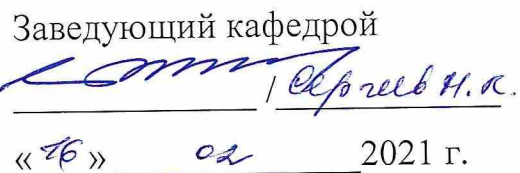 Заведующий кафедрой
/ Сергеев Н.К.
«16» 02 2021 г.